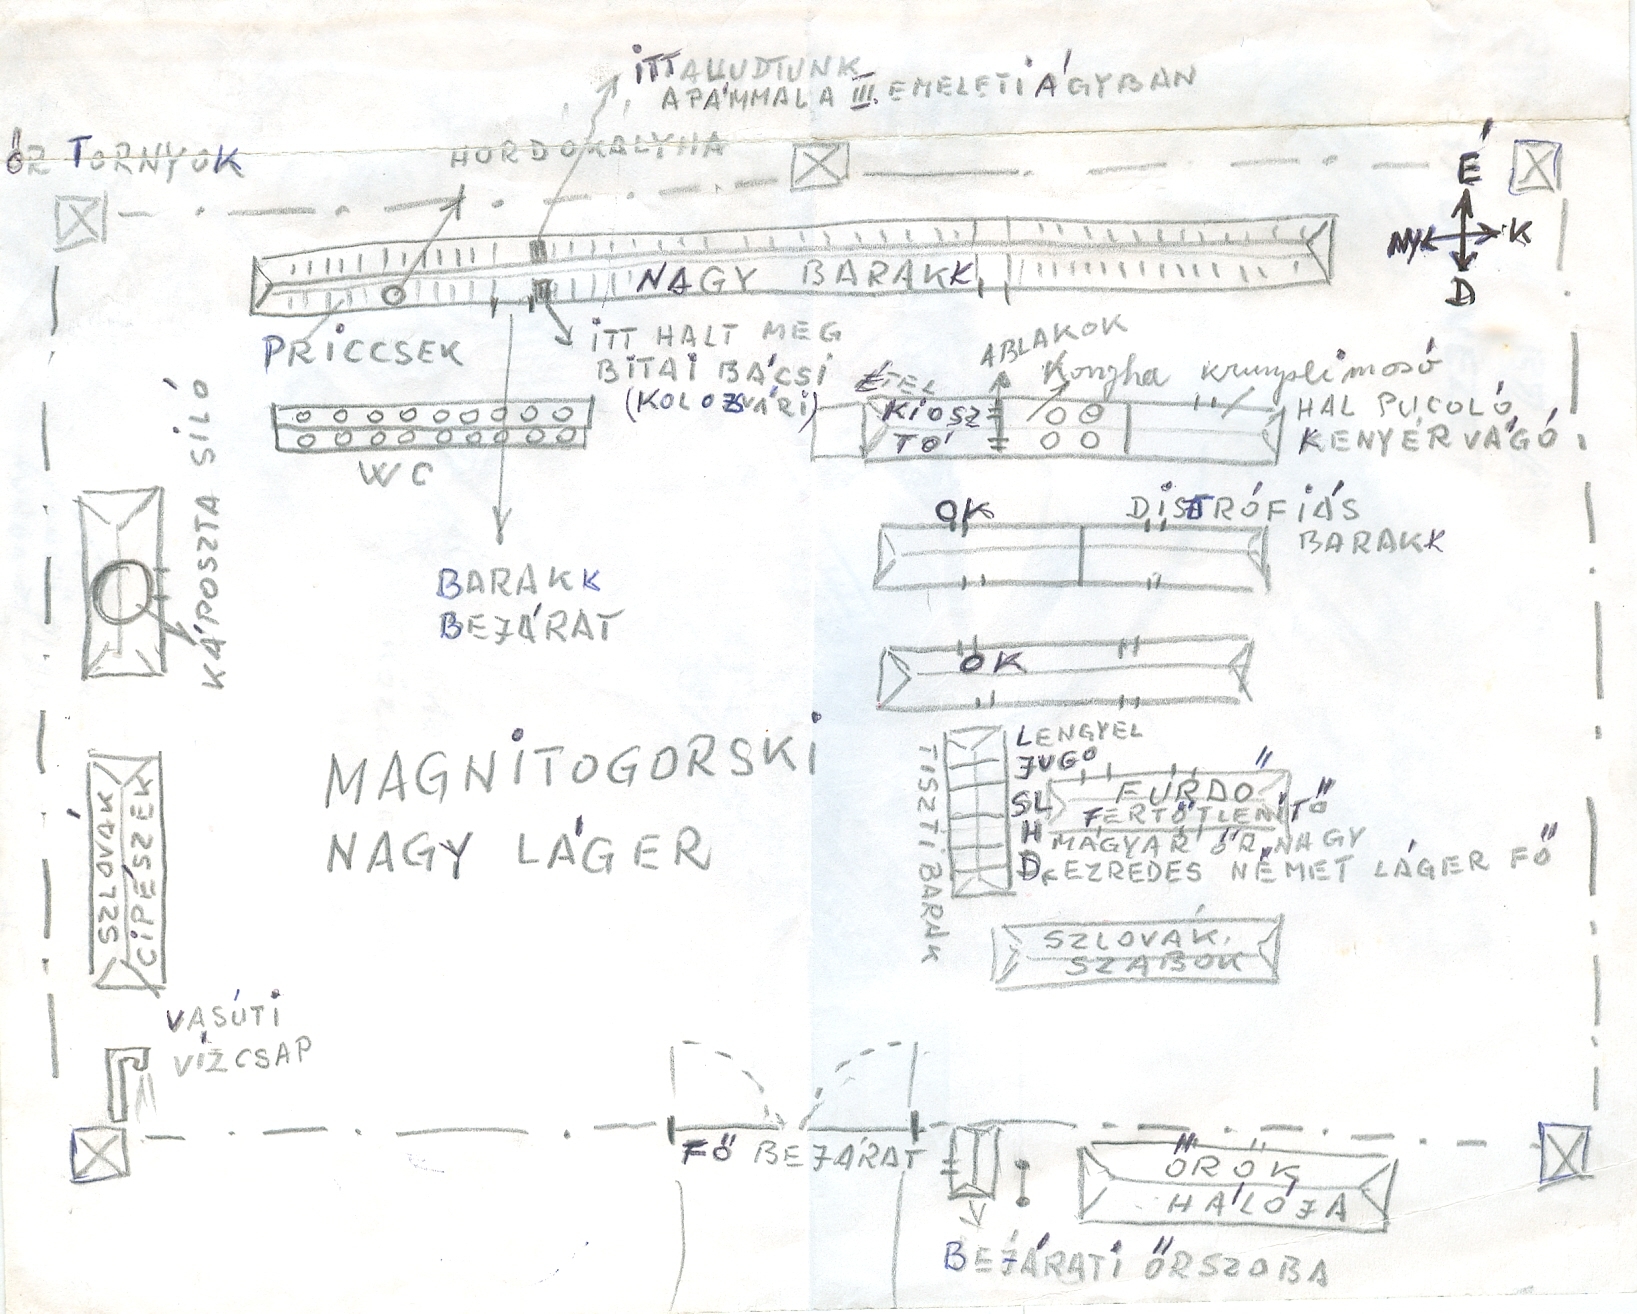 ITT ALUDTUNK
APÁMMAL A III. EMELETI ÁGYBAN
ŐR TORNYOK
HORDÓKÁLYHA
É
NY K
D
NAGY BARAKK
PRICCSEK
ITT HALT MEG
BITAI BÁCSI
(KOLOZSVÁRI)
ABLAKOK
ÉTEL
KIOSZ
TÓ
Konyha krumplimosó
HAL PUCOLÓ
KENYÉRVÁGÓ
WC
KÁPOSZTA SILÓ
OK
DISZTRÓFIÁS
BARAKK
BARAKK
BEJÁRAT
OK
MAGNITOGORSKI
NAGY LÁGER
TISZTI BARAK
LENGYEL
JUGO
SL
H MAGYAR ŐRNAGY
D. EZREDES NÉMET LÁGER FŐ
FÜRDŐ
FERTŐTLENÍTŐ
SZLOVÁK
CIPÉSZEK
SZLOVÁK.
SZABÓK
VASÚTI
VÍZCSAP
FŐ BEJÁRAT
ŐRÖK
HÁLÓJA
BEJÁRATI ŐRSZOBA